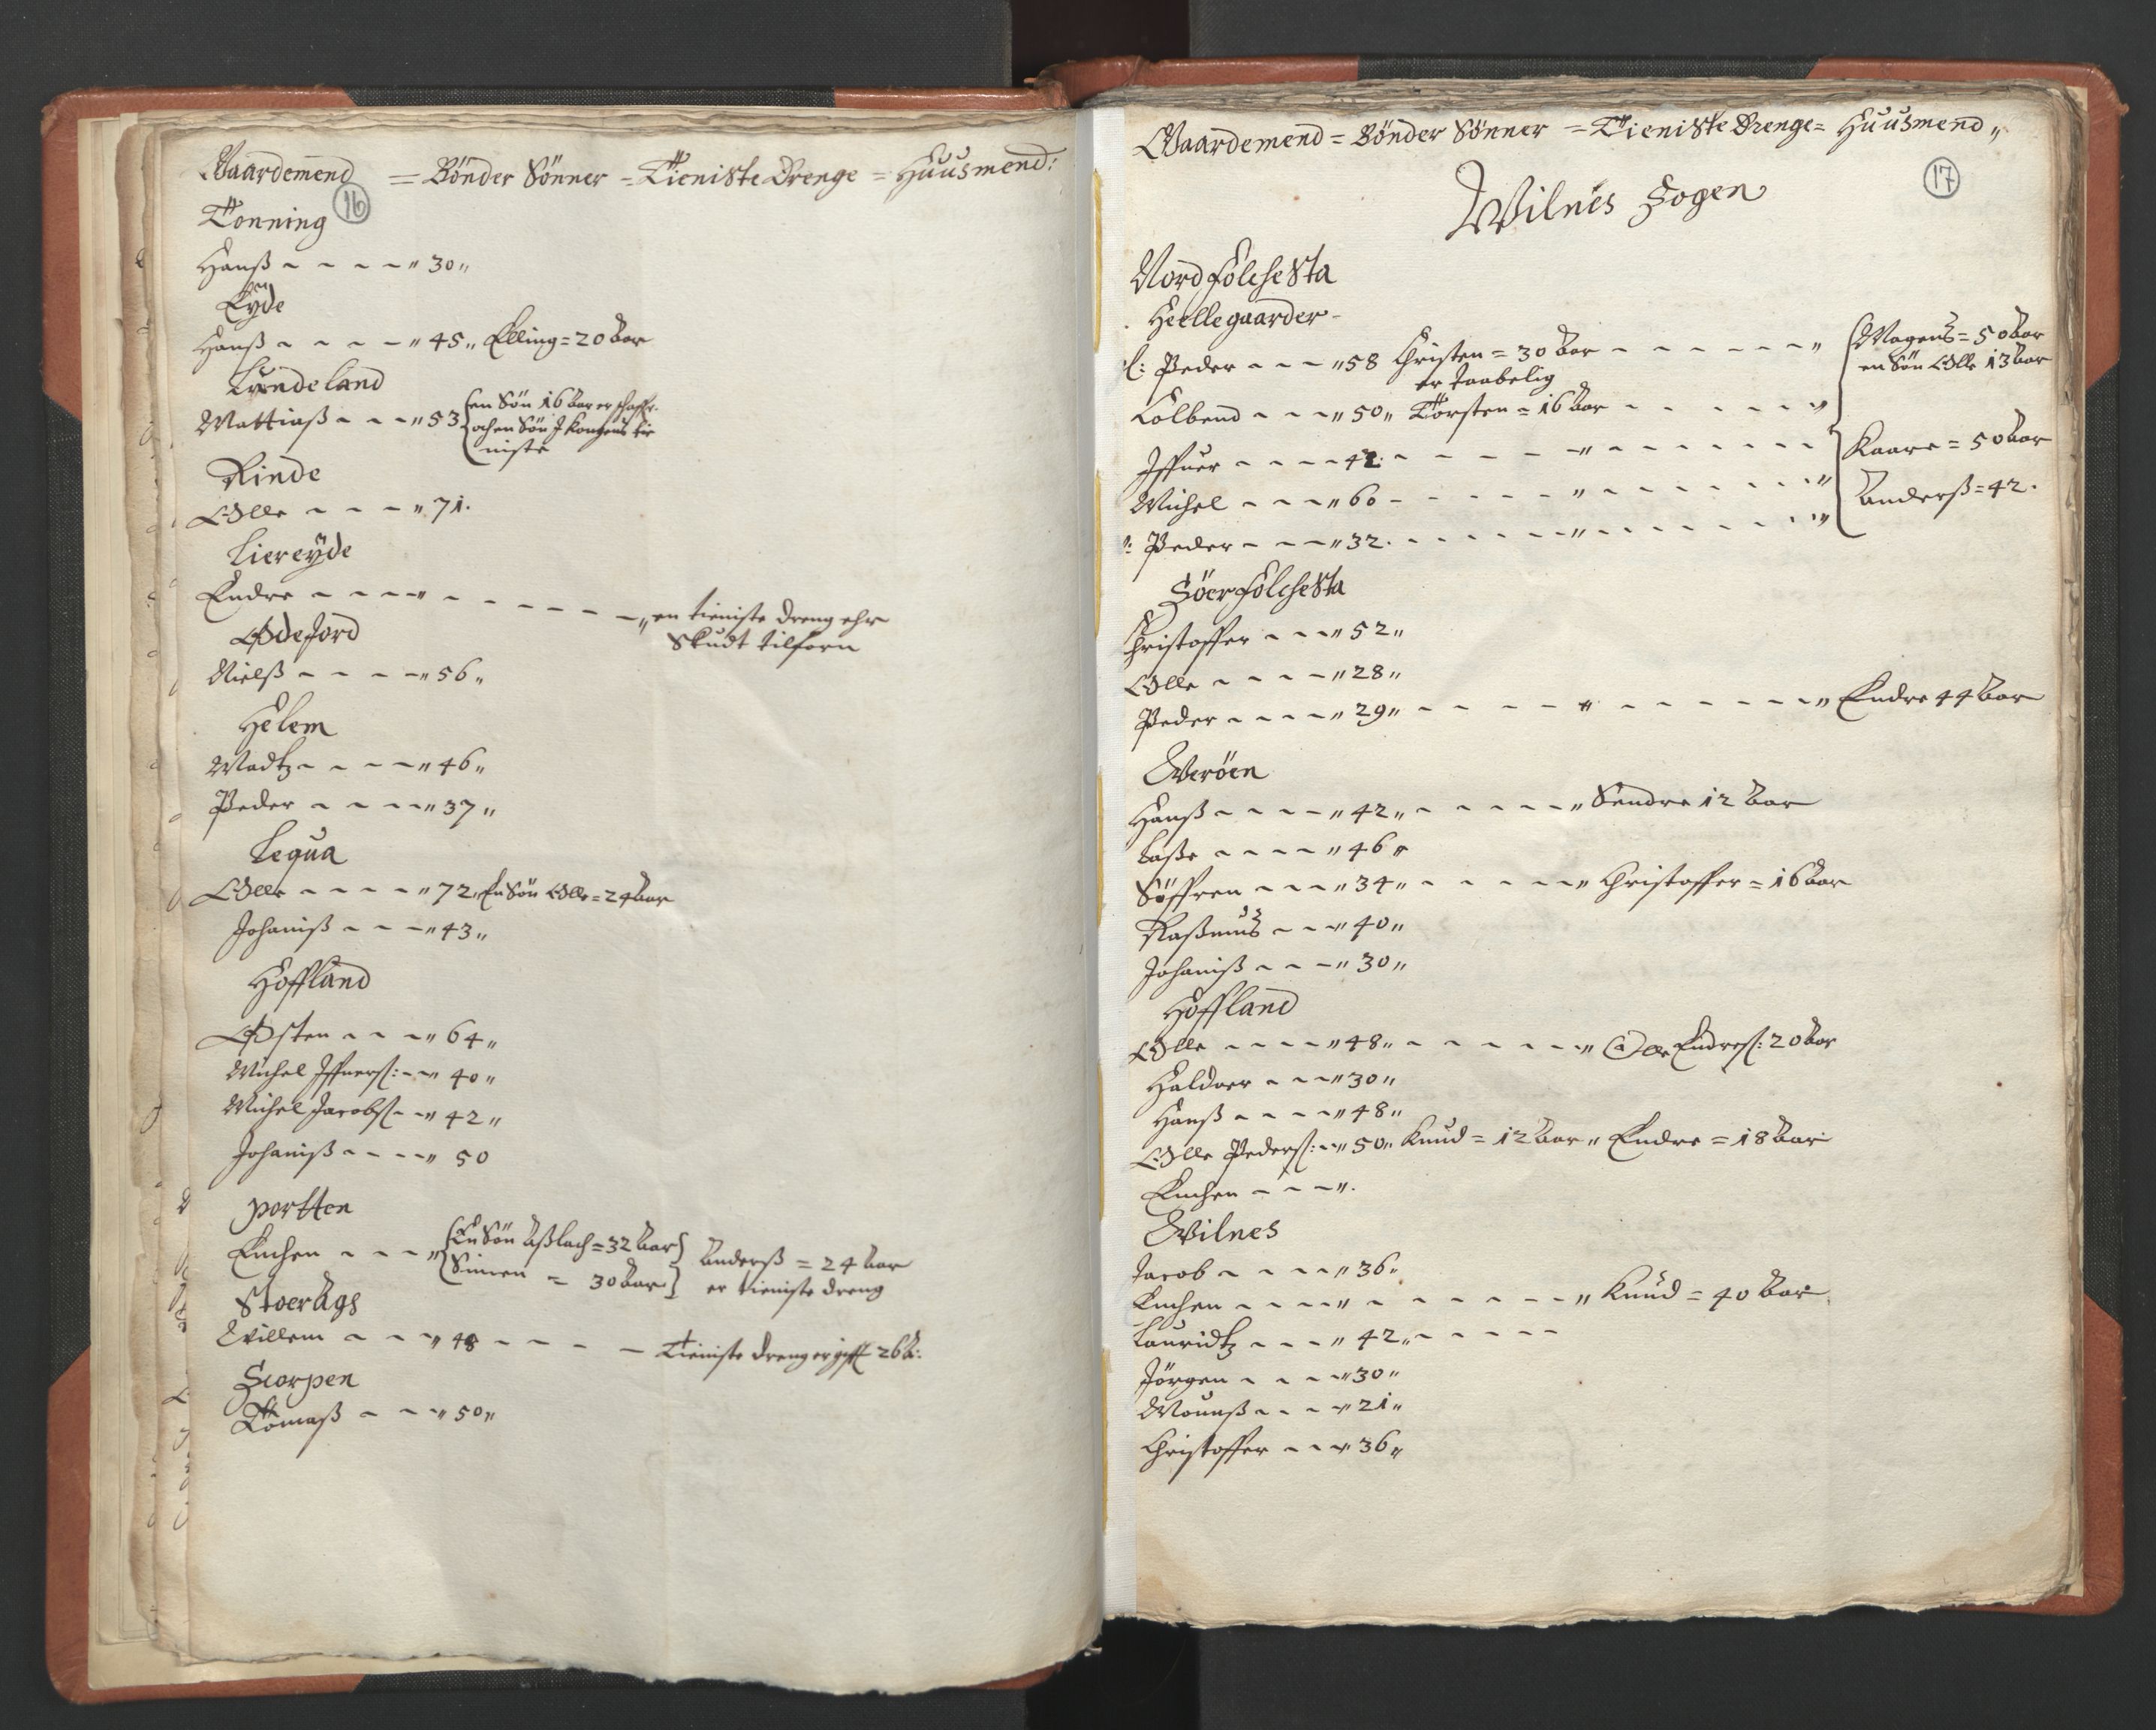 Gaardemend = Bönder Sönner = Tieniste Drenge = Huusmend:
16
Tonning
Hanß - - - - „ 30 „
Eyde
Hanß - - - - „ 45 „ Elling = 20 Aar
Lundeland
Mattiaß - - - „ 53 en Sön 16 Aar er
och en Sön J Kongens tie
niste
Rinde
Olle - - - „ 71.
Liereÿde
Endre - - - „ - - - - - - „ en tieniste dreng ehr
Skudt tilforn
Ødefiord
Nielß - - - - „ 56 „
Helem
Madtz - - - - „ 46 „
Peder - - - - „ 37 „
Lequa
Olle - - - - „ 72 „ En Sön Olle = 24 Aar
Johaniß - - - „ 43 „
Hoffland
Østen - - - „ 64 „
Michel Iffuers: - - „ 40 „
Michel Jacobs - - „ 42 „
Johaniß - - - - „ 50
portten
Enchen - - - „ En Sön Aßlach = 32 Aar Anderß = 24 Aar
Simen = 30 Aar er tieniste dreng
Stoerags
Villem - - - „ 48 - - - - Tieniste dreng er 26 A:
Scorpen
Tomaß - - - „ 50 „
Gaardemend = Bönder Sönner = Tieniste Drenge = Huusmend „
17
Wilnes Sogen
Nordfolchesta
Heelle gaarder -
l: Peder - - - „ 58 Christen = 30 Aar - - - - - - „ Mogens = 50 Aar
er en Sön Olle 13 Aar
Colbend - - - „ 50 „ Torsten = 16 Aar - - - - - „
Iffuer - - - - 42 - - - - - „ - - - - - - - Kaare = 50 Aar
Michel - - - „ 60 - - - - - - „ - - - - - - „ Anderß = 42.
l: Peder - - - „ 32. - - - - - - „ - - - - - - „
Söerfolchesta
Christoffer - - - „ 52 „
Olle - - - - „ 28 „
Peder - - - - „ 29 „ - - - - - „ - - - - - - „ Endre 44 Aar
Weröen
Hanß - - - - „ 42 „ - - - - - „ Sendre 12 Aar
Laße - - - - „ 46 „
Söffren - - - „ 34 „ - - - - - „ Christoffer = 16 Aar
Raßmus - - - „ 40 „
Johaniß - - - „ 30 „
Hoffland
Olle - - - - „ 48 „ - - - - - - „ Olle Endres: 20 Aar
Haldoer - - - „ 30 „
Hanß - - - - „ 48 „
Olle Peders: - - „ 50 „ Knud = 12 Aar „ Endre = 18 Aar
Enchen - - - „ .
Wilnes
Jacob - - - - „ 36 „
Enchen - - - - „ - - - - - - - „ Knud = 40 Aar
Lauridtz - - - „ 42 „ - - - - -
Jörgen - - - - „ 30 „
Mounß - - - „ 21 „
Christoffer - - - „ 36 „